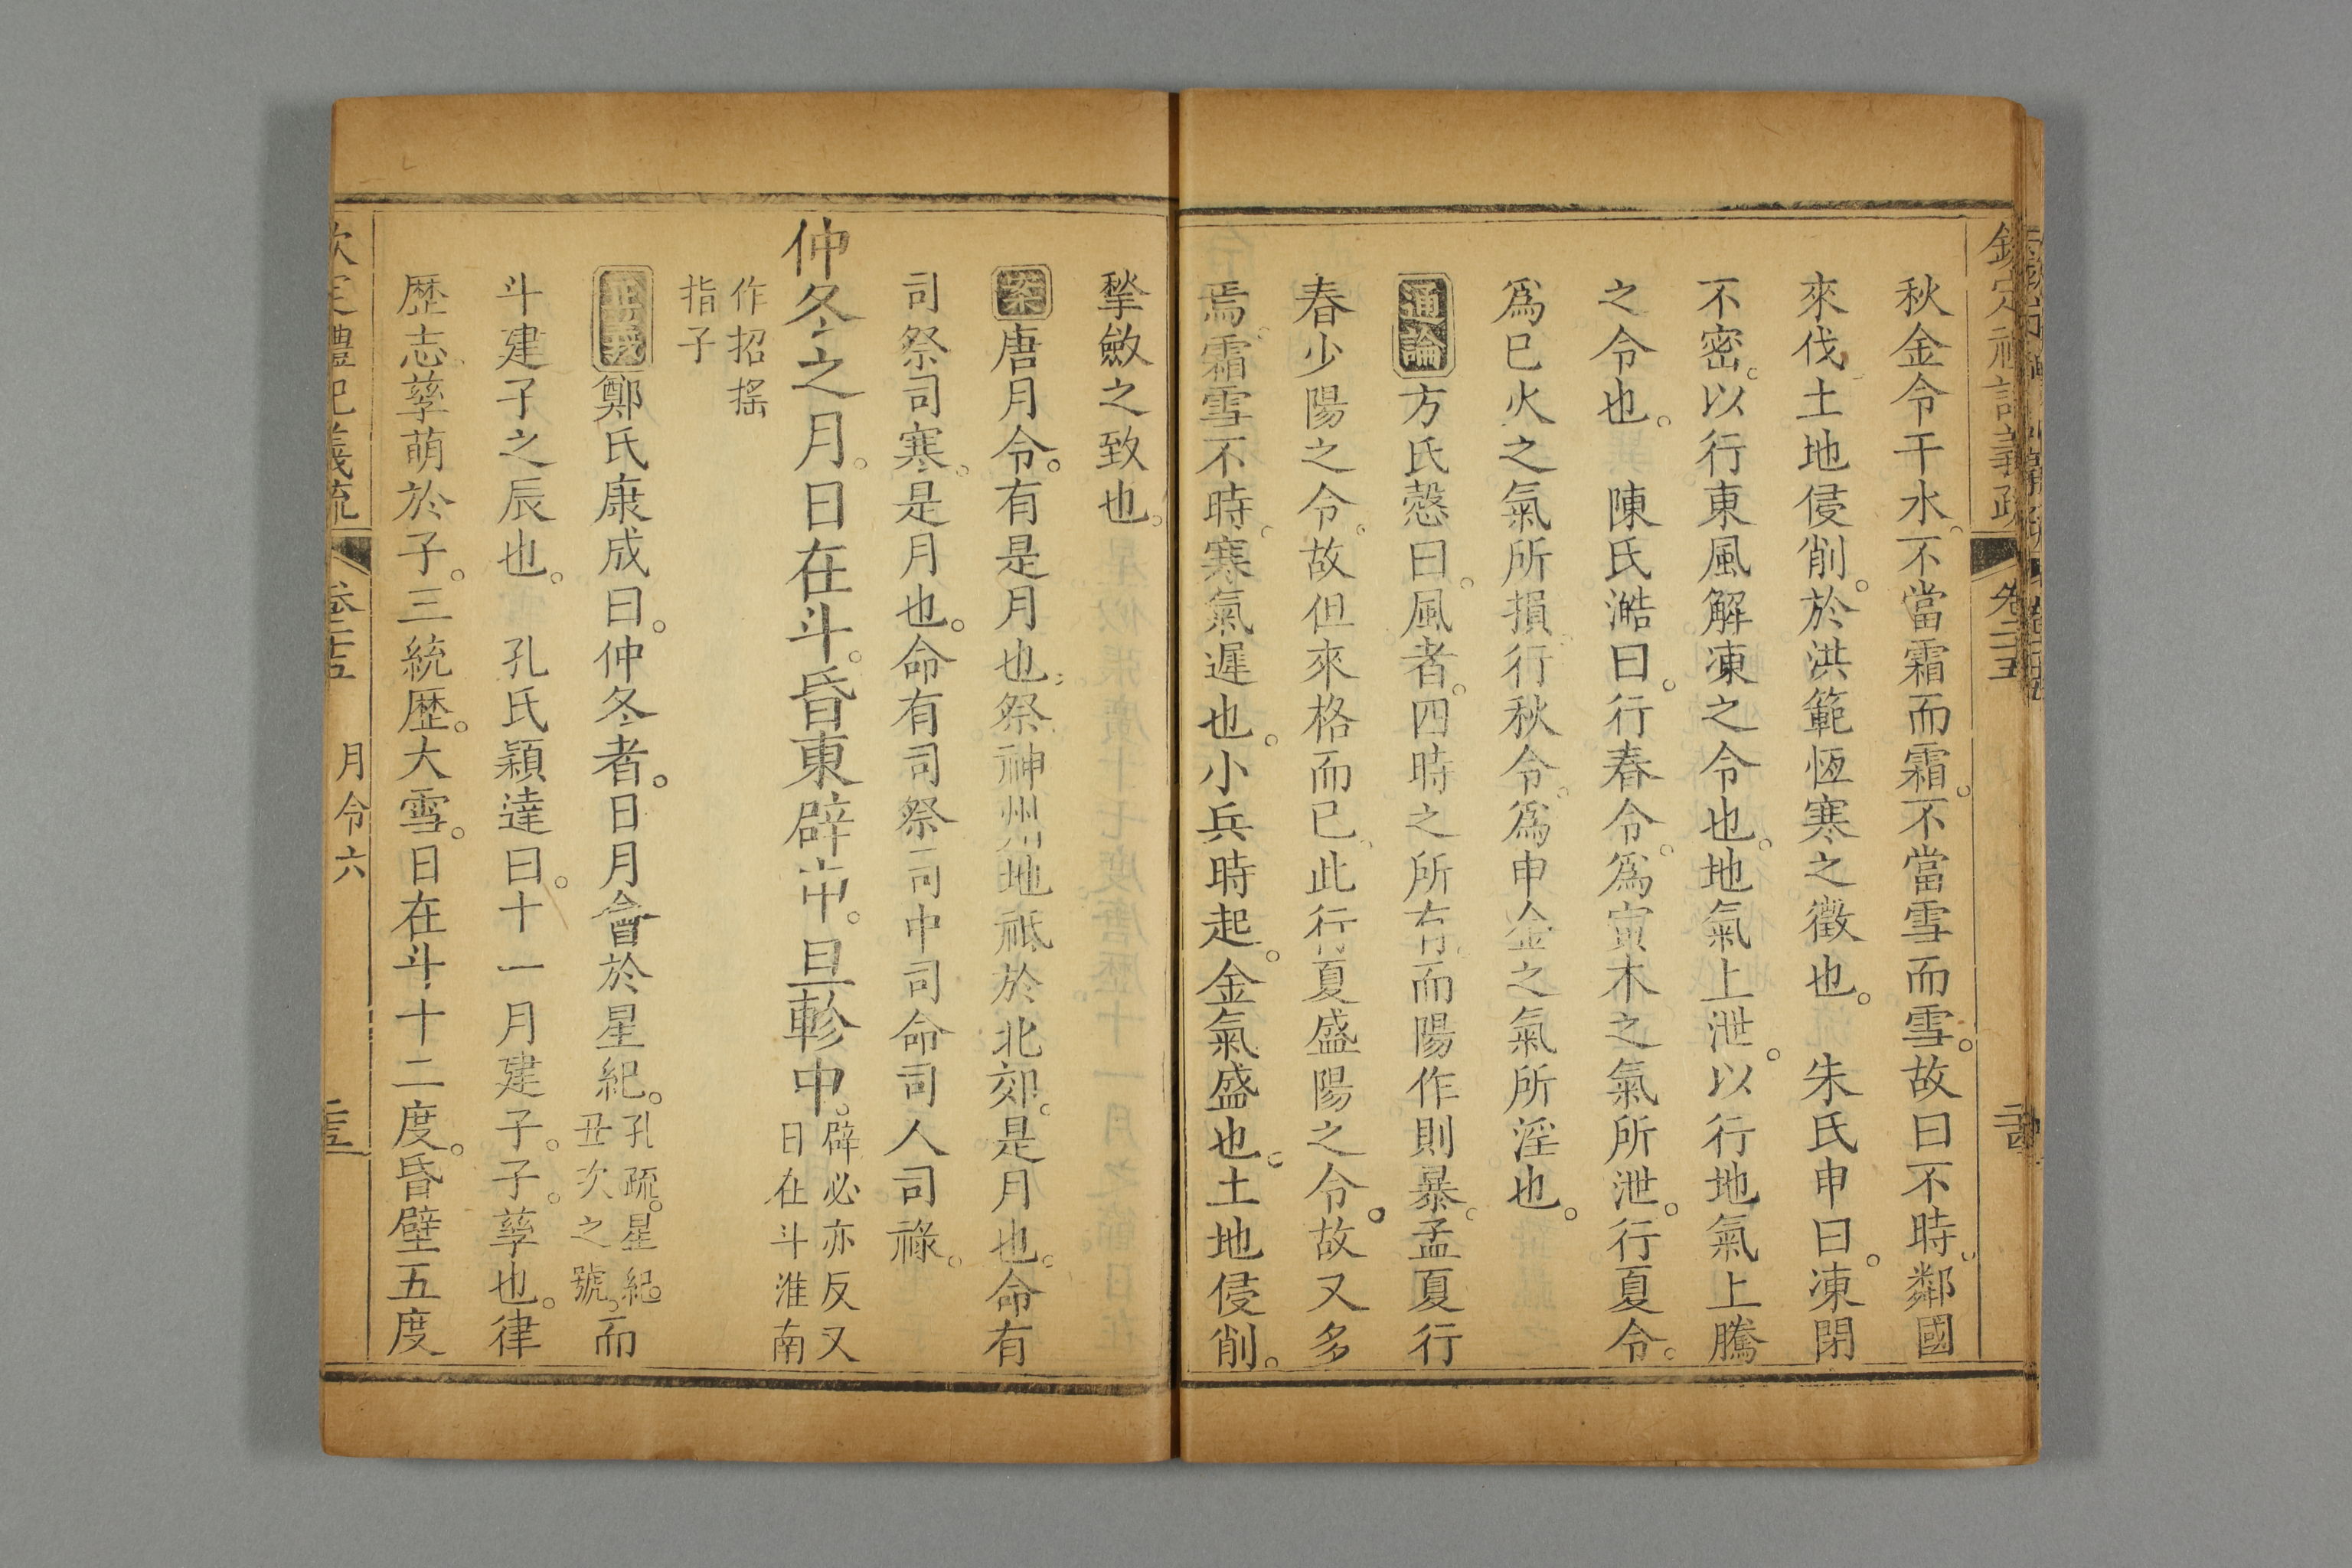 秋金令干水。不當霜而霜。不當雪而雪。故曰不時。鄰國
來伐土地侵削。於洪範恆寒之徵也。　朱氏申曰。凍閉
不密。以行東風解凍之令也。地氣上泄。以行地氣上騰
之令也。　陳氏澔曰。行春令。爲寅木之氣所泄。行夏令。
爲巳火之氣所損。行秋令。爲申金之氣所淫也。
通論方氏慤曰。風者。四時之所有。而陽作則暴。孟夏行
春少陽之令。故但來格而已。此行夏盛陽之令。故又多
焉。霜雪不時。寒氣遲也。小兵時起。金氣盛也。土地侵削。
揫斂之致也。
案唐月令。有是月也。祭神州地祇於北郊。是月也。命有
司祭司寒。是月也。命有司祭司中司命司人司祿。
仲冬之月。日在斗。昏東辟中。旦軫中。辟必亦反又
日在斗淮南
作招搖
指子
正義鄭氏康成曰。仲冬者。日月會於星紀。孔疏。星紀。
丑次之號。而
斗建子之辰也。　孔氏穎達曰。十一月建子。子。孳也。律
歷志。孳萌於子。三統歷。大雪。日在斗十二度。昏壁五度
欽定禮記義疏　卷二十五　月令六　二十五